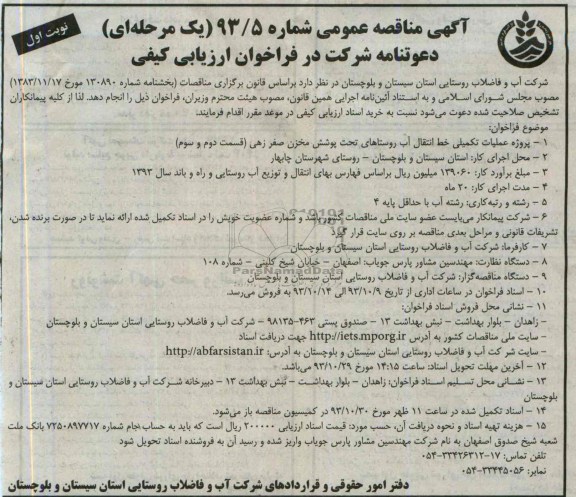 آگهی مناقصه عمومی شماره ۹۳/۵ (یک مرحله‌ای)
نوبت اول
دعوتنامه شرکت در فراخوان ارزیابی کیفی
شرکت آب و فاضلاب روستایی استان سیستان و بلوچستان در نظر دارد براساس قانون برگزاری مناقصات (بخشنامه شماره ۱۳۰۸۹۰ مورخ ۱۳۸۳/۱۱/۱۷)
مصوب مجلس شورای اسلامی و به استناد آئین‌نامه اجرایی همین قانون، مصوب هیئت محترم وزیران، فراخوان ذیل را انجام دهد. لذا از کلیه پیمانکاران
تشخیص صلاحیت شده دعوت می‌شود نسبت به خرید اسناد ارزیابی کیفی در موعد مقرر اقدام فرمایند.
موضوع فراخوان:
۱ – پروژه عملیات تکمیلی خط انتقال آب روستاهای تحت پوشش مخزن صفر زهی (قسمت دوم و سوم)
۲ – محل اجرای کار: استان سیستان و بلوچستان – روستای شهرستان چابهار
۳ – مبلغ برآورد کار: ۱۳۹۰۶۰ میلیون ریال براساس فهارس بهای انتقال و توزیع آب روستایی و راه و باند سال ۱۳۹۳
۴ – مدت اجرای کار: ۲۰ ماه
۵ – رشته و رتبه‌کاری: رشته آب با حداقل پایه ۴
۶ – شرکت پیمانکار می‌بایست عضو سایت ملی مناقصات کشور باشد و شماره عضویت خویش را در اسناد تکمیل شده ارائه نماید تا در صورت برنده شدن،
تشریفات قانونی و مراحل بعدی مناقصه بر روی سایت قرار گیرد
۷ – کارفرما: شرکت آب و فاضلاب روستایی استان سیستان و بلوچستان
۸ – دستگاه نظارت: مهندسین مشاور پارس جویاب: اصفهان – خیابان شیخ کلینی – شماره ۱۰۸
۹ – دستگاه مناقصه‌گزار: شرکت آب و فاضلاب روستایی استان سیستان و بلوچستان
۱۰ – اسناد فراخوان در ساعات اداری از تاریخ ۹۳/۱۰/۹ الی ۹۳/۱۰/۱۴ به فروش می‌رسد.
۱۱ – نشانی محل فروش اسناد فراخوان:
– زاهدان – بلوار بهداشت – نبش بهداشت ۱۳ – صندوق پستی ۴۶۳–۹۸۱۳۵ – شرکت آب و فاضلاب روستایی استان سیستان و بلوچستان
– سایت ملی مناقصات کشور به آدرس http://iets.mporg.ir جهت دریافت اسناد
– سایت شرکت آب و فاضلاب روستایی استان سیستان و بلوچستان به آدرس: http://abfarsistan.ir
۱۲ – آخرین مهلت تحویل اسناد: ساعت ۱۴:۱۵ مورخ ۹۳/۱۰/۲۹ می‌باشد.
۱۳ – نشانی محل تسلیم اسناد فراخوان: زاهدان – بلوار بهداشت – نبش بهداشت ۱۳ – دبیرخانه شرکت آب و فاضلاب روستایی استان سیستان و
بلوچستان
۱۴ – اسناد تکمیل شده در ساعت ۱۱ ظهر مورخ ۹۳/۱۰/۳۰ در کمیسیون مناقصه باز می‌شود.
۱۵ – هزینه تهیه اسناد و نحوه دریافت آن، حسب مورد: قیمت اسناد ارزیابی ۲۰۰۰۰۰ ریال است که باید به حساب جام شماره ۷۲۵۰۸۹۷۷۱۷ بانک ملت
شعبه شیخ صدوق اصفهان به نام شرکت مهندسین مشاور پارس جویاب واریز شده و رسید آن به فروشنده اسناد تحویل شود
تلفن تماس: ۱۷–۳۳۴۲۶۳۱۲–۰۵۴
نمابر: ۳۳۴۴۵۰۵۶–۰۵۴
دفتر امور حقوقی و قراردادهای شرکت آب و فاضلاب روستایی استان سیستان و بلوچستان
ParsNamadData